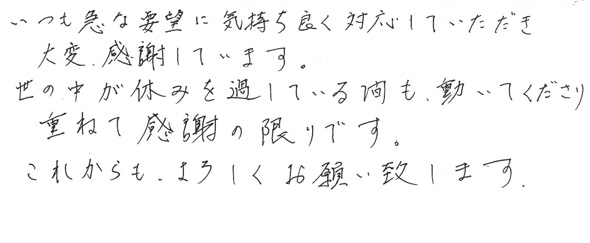 いつも急な要望に気持ち良く対応していただき
大変、感謝しています。
世の中が休みを過している間も、動いてくださり
重ねて感謝の限りです。
これからも、よろしくお願い致します。